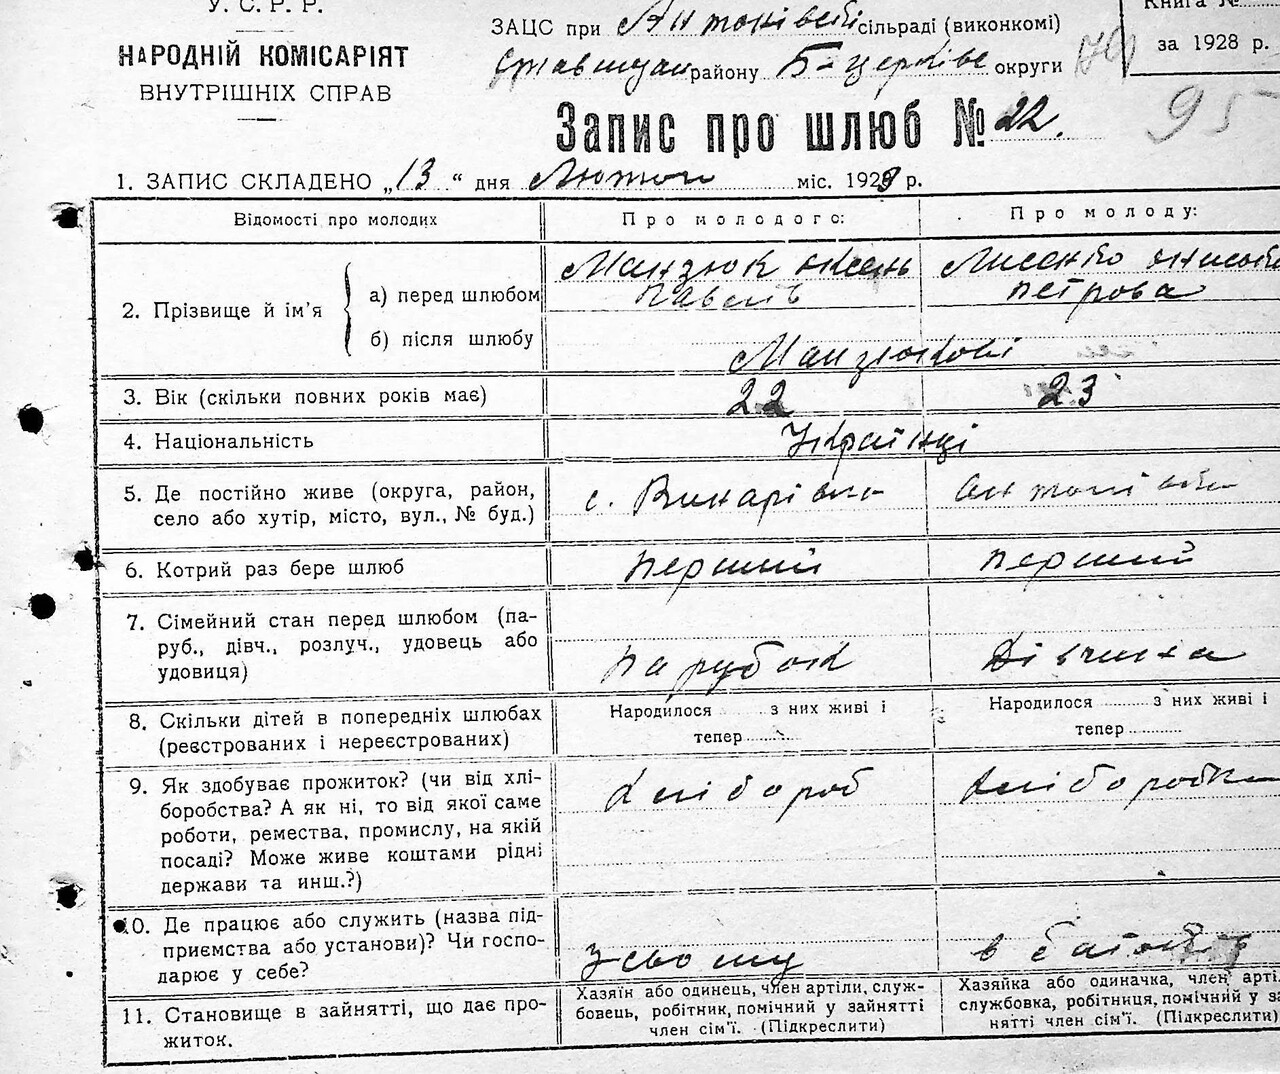 У. С. Р. Р.
НАРОДНІЙ КОМІСАРІЯТ
ВНУТРІШНІХ СПРАВ
ЗАЦС при Антонівській сільраді (виконкомі)
району Б-церківс округи
Книга №
за 1928 р.
95
Запис про шлюб № 22.
1. ЗАПИС СКЛАДЕНО „13“ дня Лютого міс. 1928 р.
Відомості про молодих
Про молодого:
Про молоду:
2. Прізвище й ім'я
а) перед шлюбом
Манзюк
Павлів
Лисенко
Петрова
б) після шлюбу
Манзюкові
3. Вік (скільки повних років має)
22
23
4. Національність
Українці
5. Де постійно живе (округа, район,
село або хутір, місто, вул., № буд.)
с. Винарівка
Антонівка
6. Котрий раз бере шлюб
перший
перший
7. Сімейний стан перед шлюбом (па-
руб., дівч., розлуч., удовець або
удовиця)
парубок
Дівчина
8. Скільки дітей в попередніх шлюбах
(реєстрованих і нереєстрованих)
Народилося з них живі і
тепер
Народилося з них живі і
тепер
9. Як здобуває прожиток? (чи від хлі-
боробства? А як ні, то від якої саме
роботи, ремества, промислу, на якій
посаді? Може живе коштами рідні
держави та инш.?)
Хлібороб
Хліборобка
10. Де працює або служить (назва під-
приємства або установи)? Чи госпо-
дарює у себе?
в батьків
11. Становище в зайнятті, що дає про-
житок.
Хазяїн або одинець, член артіли, служ-
бовець, робітник, помічний у зайнятті
член сім'ї. (Підкреслити)
Хазяйка або одиначка, член артіл
службовка, робітниця, помічний у за
нятті член сім'ї. (Підкреслити)